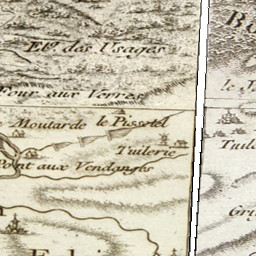 Etg. des Usages
Four aux Verres
Moutarde le Pissotel
Tuilerie
Pont aux Vendanges
le
Tuile